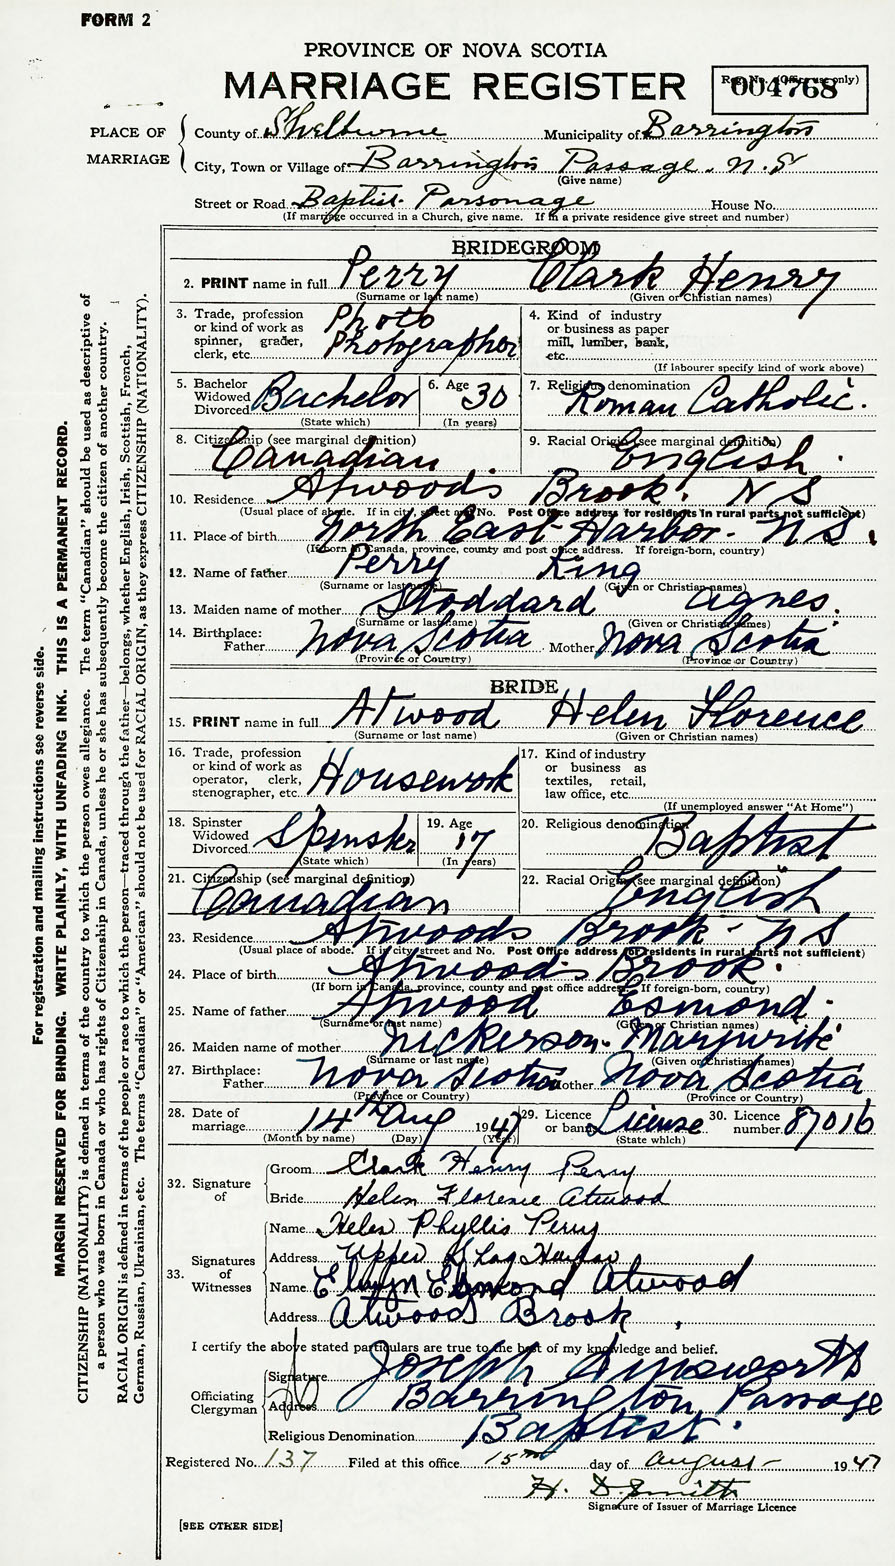 FORM 2
PROVINCE OF NOVA SCOTIA
MARRIAGE REGISTER
Reg. No. (Office use only)
004768
PLACE OF MARRIAGE
County of Shelburne Municipality of Barrington
City, Town or Village of Barrington Passage. N.S
(Give name)
Street or Road Baptist Parsonage House No.
(If marriage occurred in a Church, give name. If in a private residence give street and number)
BRIDEGROOM
2. PRINT name in full Perry Clark Henry
(Surname or last name) (Given or Christian names)
3. Trade, profession or kind of work as spinner, grader, clerk, etc. Photo Photographer
4. Kind of industry or business as paper mill, lumber, bank, etc.
(If labourer specify kind of work above)
5. Bachelor Widowed Divorced Bachelor
(State which)
6. Age 30
(In years)
7. Religious denomination Roman Catholic.
8. Citizenship (see marginal definition) Canadian
9. Racial Origin (see marginal definition) English.
10. Residence Atwood's Brook. N S
(Usual place of abode. If in city, street and No. Post Office address for residents in rural parts not sufficient)
11. Place of birth North East Harbor - N S.
(If born in Canada, province, county and post office address. If foreign-born, country)
12. Name of father Perry King
(Surname or last name) (Given or Christian names)
13. Maiden name of mother Stoddard Agnes.
(Surname or last name) (Given or Christian names)
14. Birthplace: Father Nova Scotia Mother Nova Scotia
(Province or Country) (Province or Country)
BRIDE
15. PRINT name in full Atwood Helen Florence
(Surname or last name) (Given or Christian names)
16. Trade, profession or kind of work as operator, clerk, stenographer, etc. Housework
17. Kind of industry or business as textiles, retail, law office, etc.
(If unemployed answer "At Home")
18. Spinster Widowed Divorced Spinster
(State which)
19. Age 17
(In years)
20. Religious denomination Baptist
21. Citizenship (see marginal definition) Canadian
22. Racial Origin (see marginal definition) English
23. Residence Atwoods Brook - N S
(Usual place of abode. If in city street and No. Post Office address for residents in rural parts not sufficient)
24. Place of birth Atwood's Brook.
(If born in Canada, province, county and post office address. If foreign-born, country)
25. Name of father Atwood Esmond.
(Surname or last name) (Given or Christian names)
26. Maiden name of mother Nickerson. Margurite
(Surname or last name) (Given or Christian names)
27. Birthplace: Father Nova Scotia Mother Nova Scotia
(Province or Country) (Province or Country)
28. Date of marriage 14th Aug 1947
(Month by name) (Day) (Year)
29. Licence or banns License
(State which)
30. Licence number 87016
32. Signature of
Groom Clark Henry Perry
Bride Helen Florence Atwood
33. Signatures of Witnesses
Name Helen Phyllis Perry
Address Upper Shag Harbor
Name Esmond Atwood
Address Atwoods Brook,
I certify the above stated particulars are true to the best of my knowledge and belief.
Officiating Clergyman
Signature Joseph Ainsworth
Address Barrington Passage
Religious Denomination Baptist.
Registered No. 137 Filed at this office 15th day of August 1947
H. D. Smith
Signature of Issuer of Marriage Licence
[SEE OTHER SIDE]
For registration and mailing instructions see reverse side.
MARGIN RESERVED FOR BINDING. WRITE PLAINLY, WITH UNFADING INK. THIS IS A PERMANENT RECORD.
CITIZENSHIP (NATIONALITY) is defined in terms of the country to which the person owes allegiance. The term "Canadian" should be used as descriptive of
a person who was born in Canada or who has rights of Citizenship in Canada, unless he or she has subsequently become the citizen of another country.
RACIAL ORIGIN is defined in terms of the people or race to which the person—traced through the father—belongs, whether English, Irish, Scottish, French,
German, Russian, Ukrainian, etc. The terms "Canadian" or "American" should not be used for RACIAL ORIGIN, as they express CITIZENSHIP (NATIONALITY).